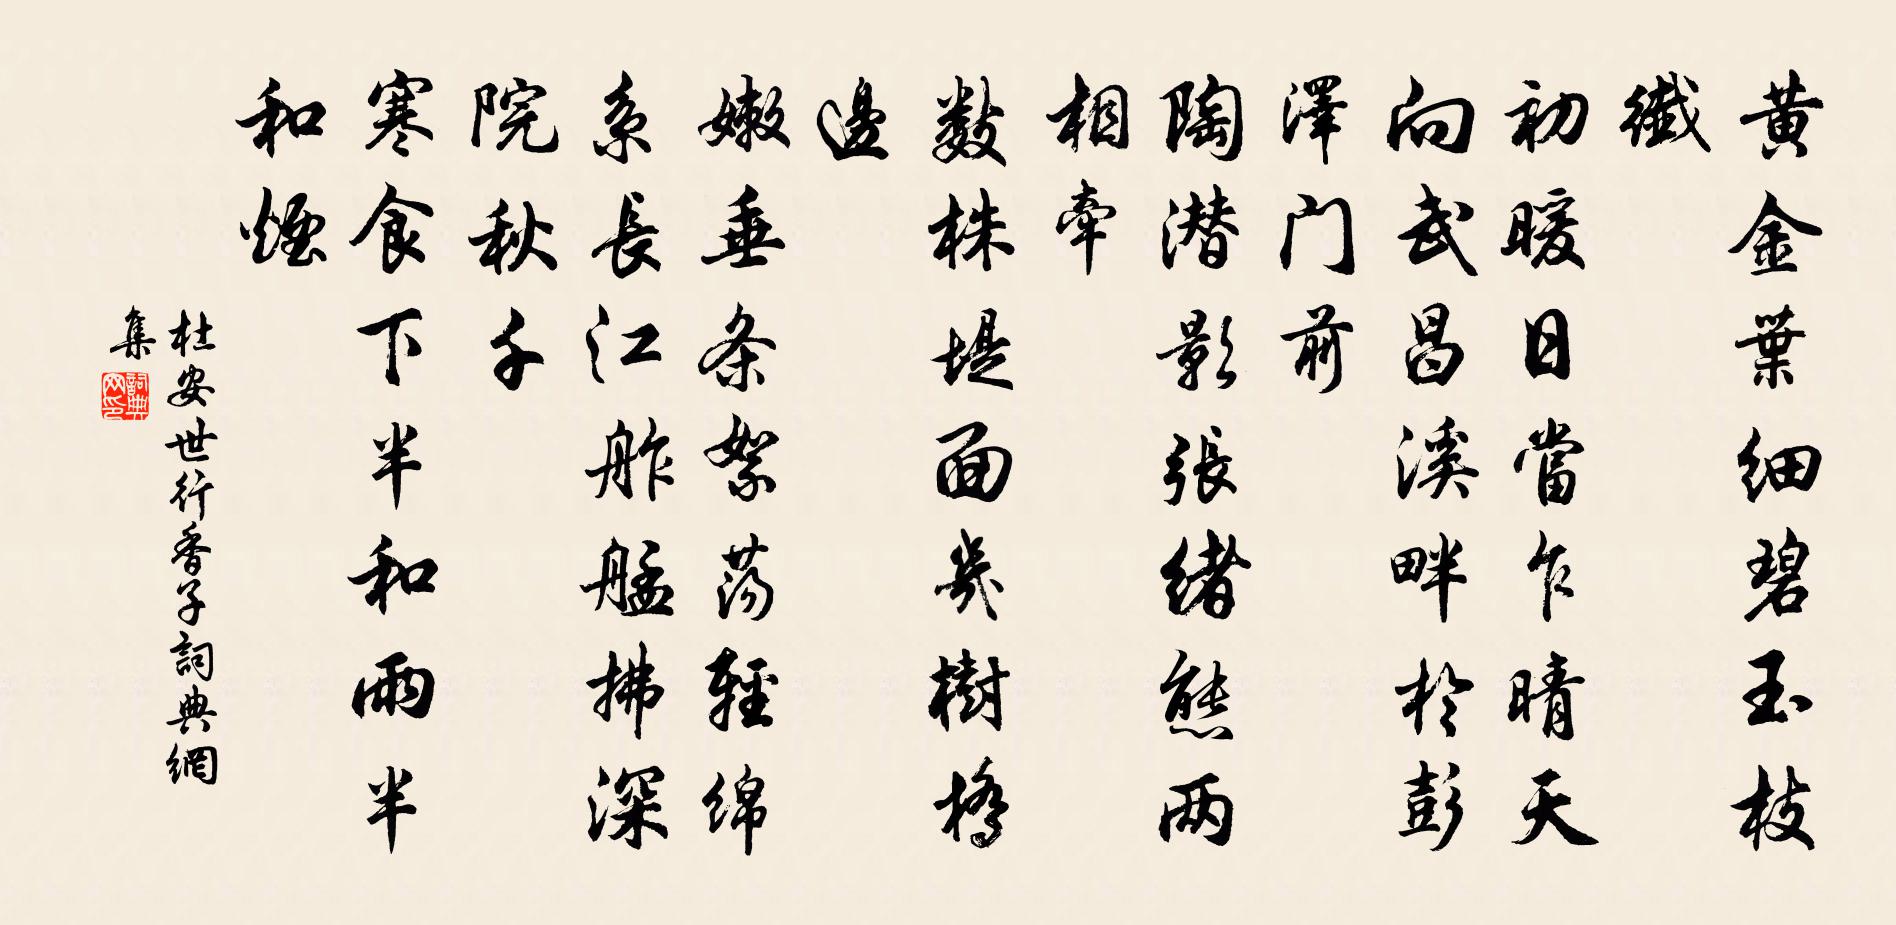 黄金葉细碧玉枝
纖
初暖日當乍晴天
向武昌溪畔於彭
澤门前
陶潜影張緒態两
相牽
数株堤面幾樹橋
邊
嫩垂条絮荡輕綿
系長江舴艋拂深
院秋千
寒食下半和雨半
和煙
杜安世行香子詞典網
集
詞典网印